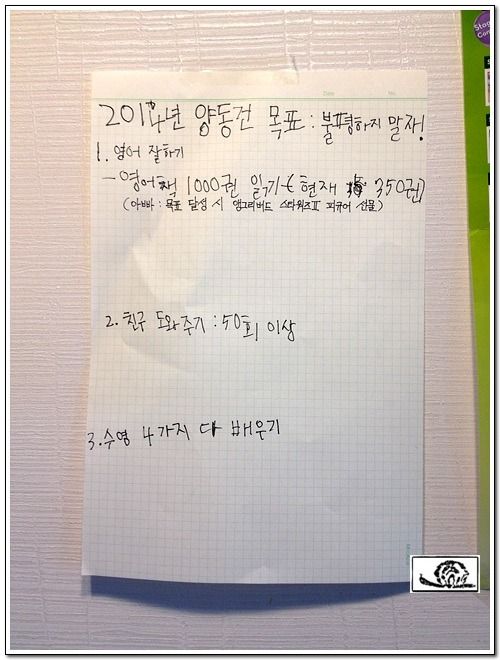 Date
No.
2014년 양동건 목표 : 불평하지 말자!
1. 영어 잘하기
- 영어책 1000권 읽기 ( 현재 350권)
(아빠 : 목표 달성 시 앵그리버드 스타워즈Ⅱ 피규어 선물)
2. 친구 도와주기 : 50회 이상
3. 수영 4가지 다 배우기